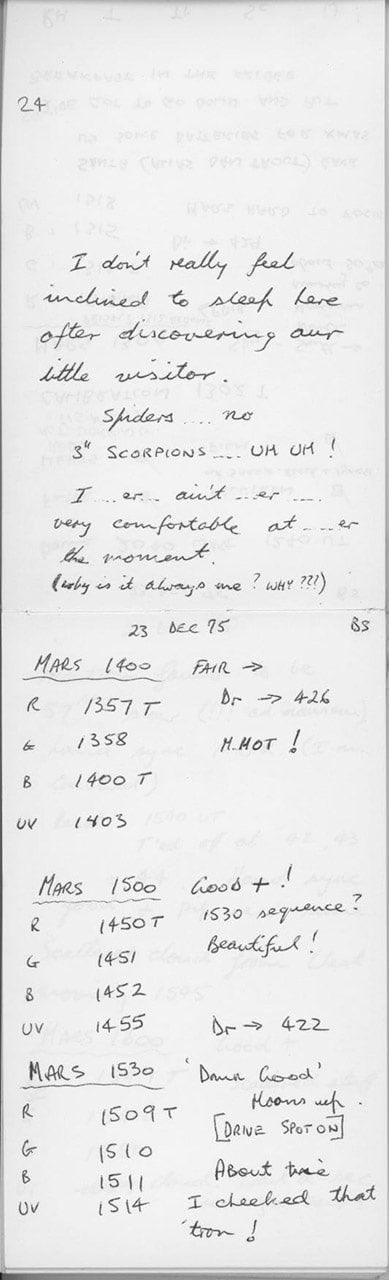 24
I don't really feel
inclined to sleep here
after discovering our
little visitor.
Spiders .... no
3" SCORPIONS .... UH UH !
I ..er.. ain't ...er ....
very comfortable at ....er
the moment.
(why is it always me? WHY???)
23 DEC 75 BS
MARS 1400 FAIR →
R 1357 T Dr → 426
G 1358 M.MOT !
B 1400 T
UV 1403
MARS 1500 Good + !
R 1450 T 1530 sequence?
G 1451 Beautiful!
B 1452
UV 1455 Dr → 422
MARS 1530 'Damn Good'
R 1509 T Moons up.
[DRIVE SPOT ON]
G 1510
B 1511 About time
UV 1514 I checked that
'tron !